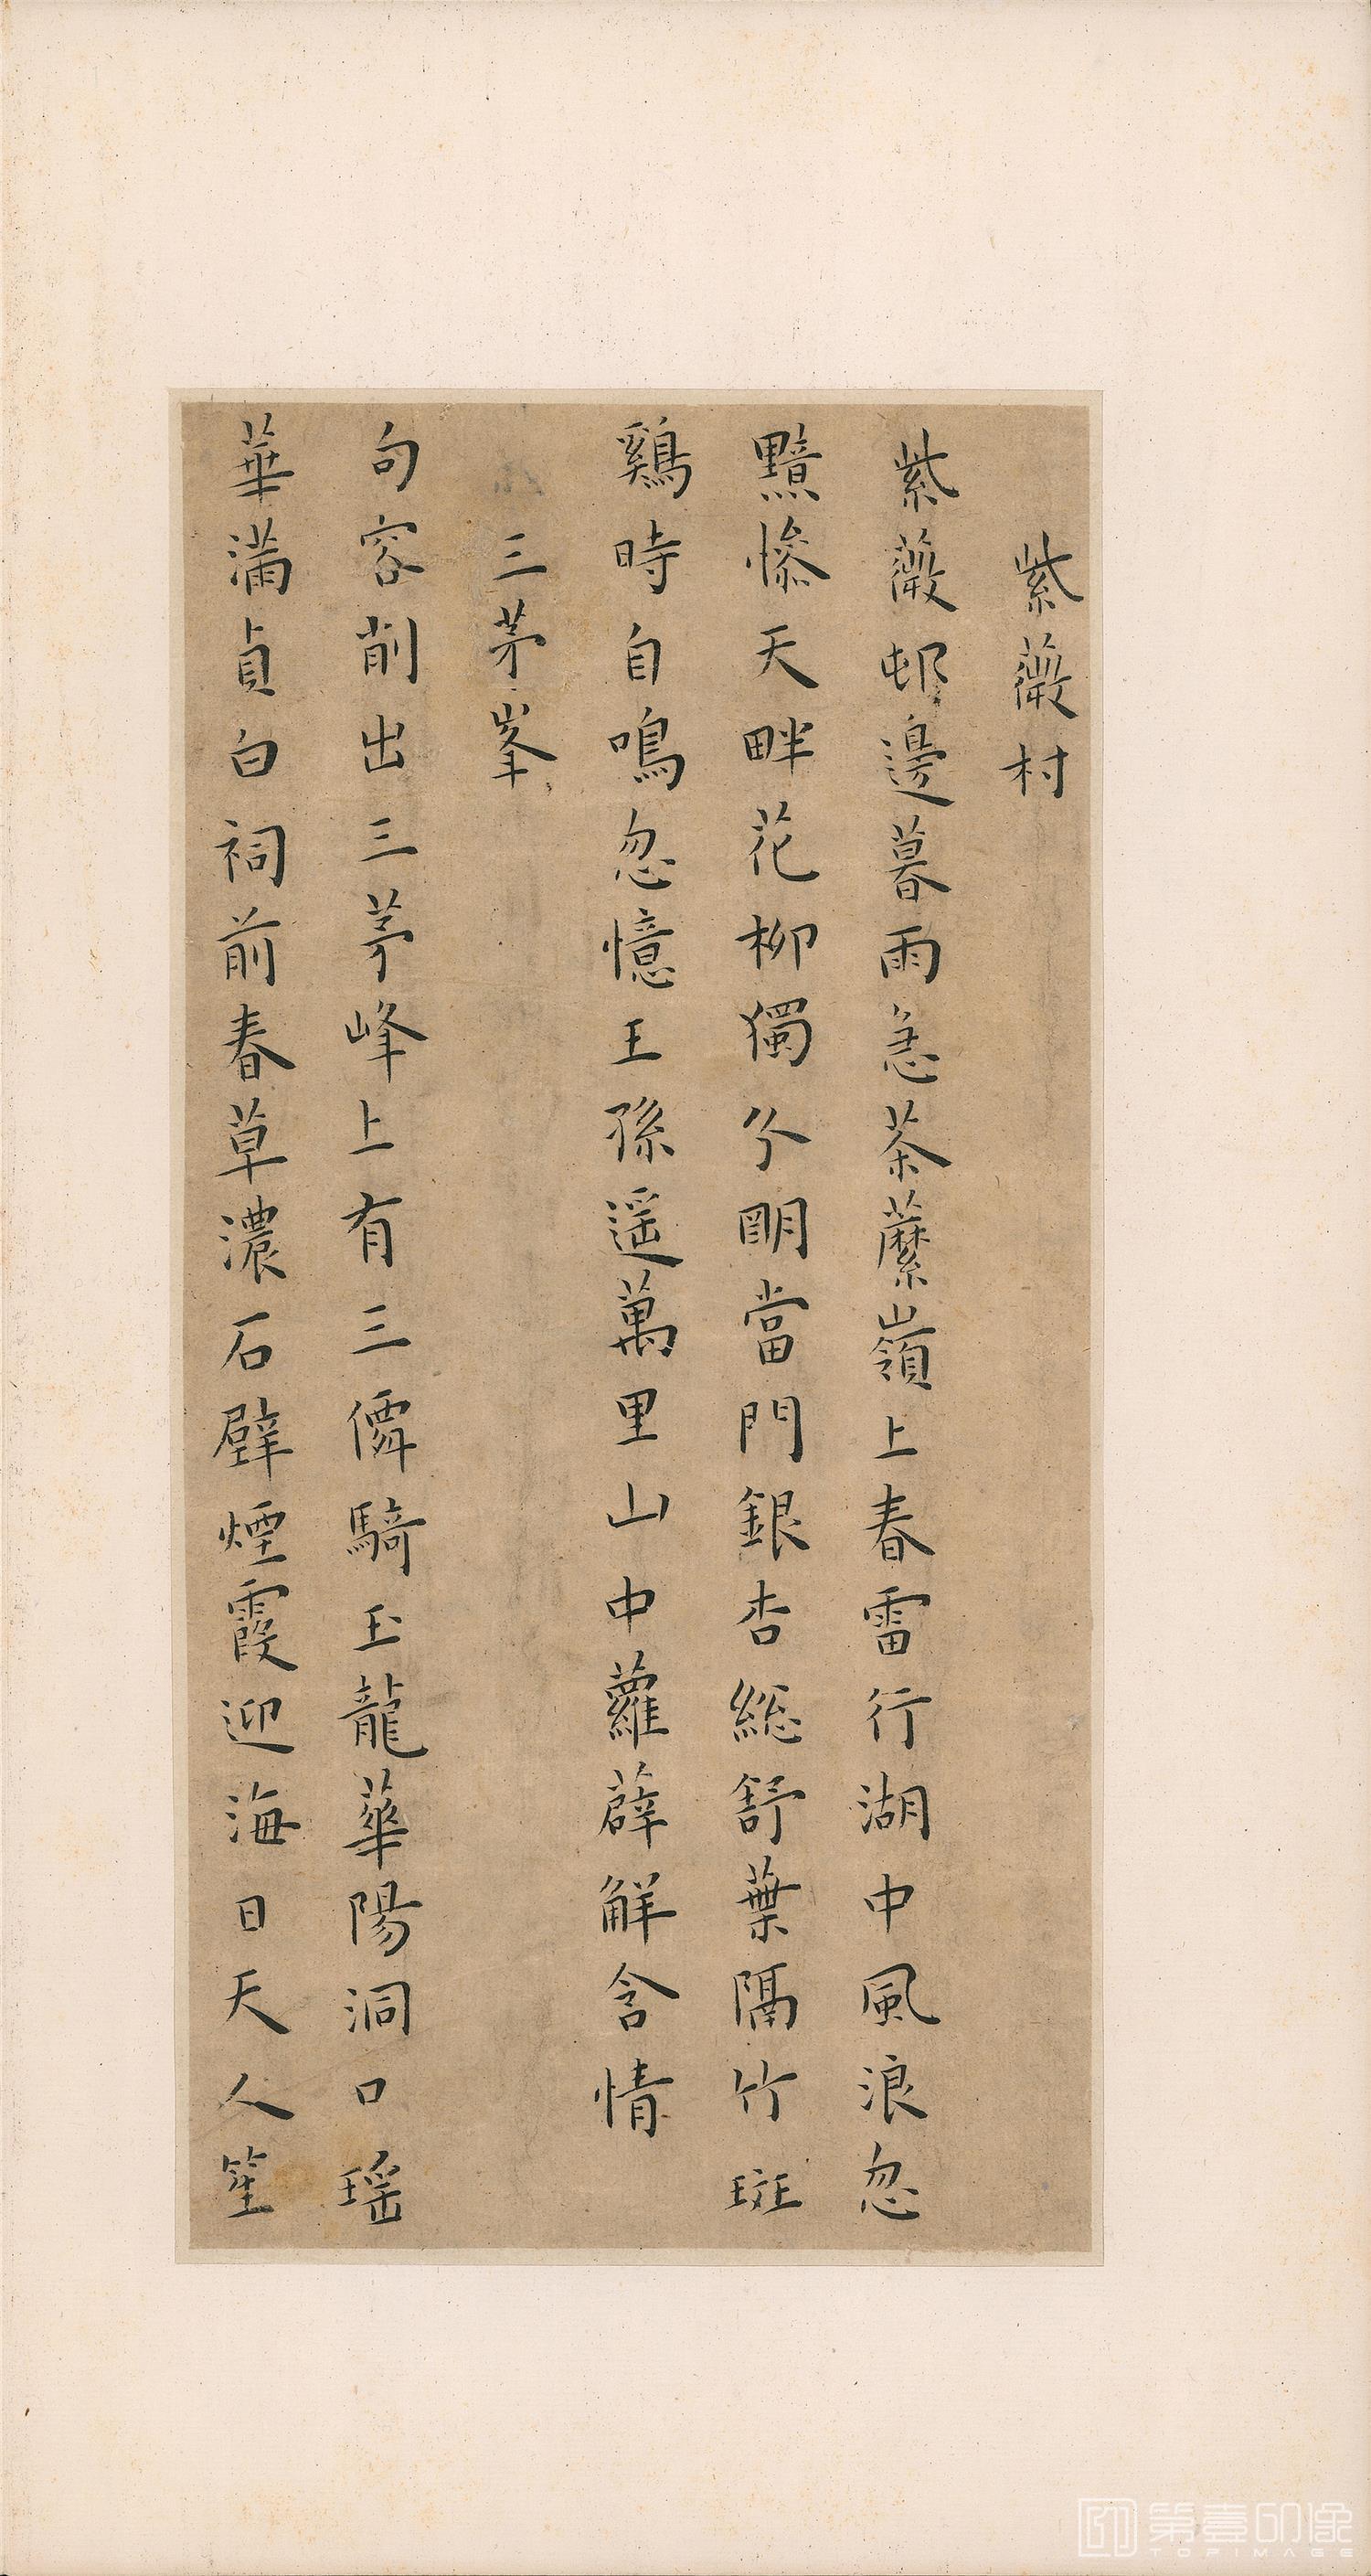 紫薇村
紫薇邨邊暮雨急荼蘼嶺上春雷行湖中風浪忽
黯慘天畔花柳獨分朙當門銀杏總舒葉隔竹斑
鷄時自鳴忽憶王孫遥萬里山中蘿薜解含情
三茅峯
句容削出三茅峰上有三僊騎玉龍華陽洞口瑶
華滿貞白祠前春草濃石壁煙霞迎海日天人笙
第壹印像
TOPIMAGE